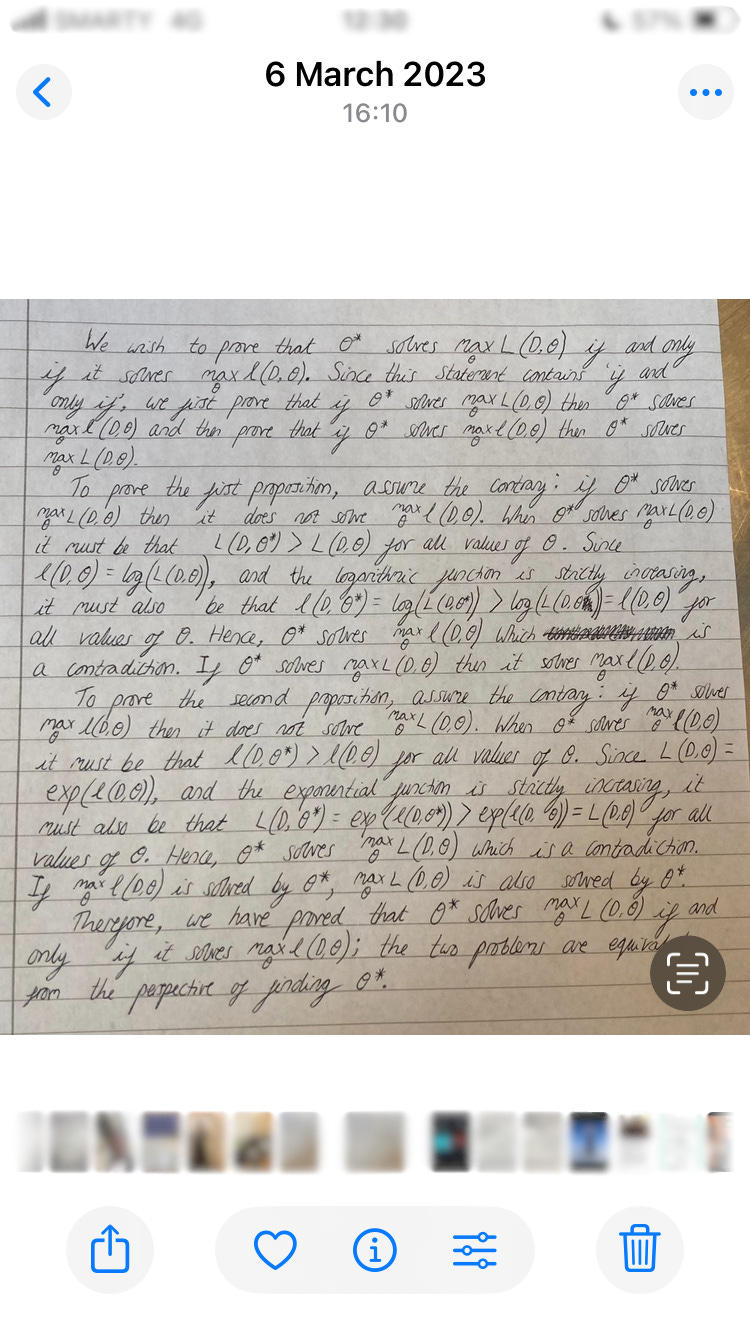 SMARTY 4G 12:30 57%
6 March 2023
16:10
We wish to prove that θ* solves max_θ L(D,θ) if and only
if it solves max_θ l(D,θ). Since this statement contains 'if and
only if', we first prove that if θ* solves max_θ L(D,θ) then θ* solves
max_θ l(D,θ) and then prove that if θ* solves max_θ l(D,θ) then θ* solves
max_θ L(D,θ).
To prove the first proposition, assume the contrary: if θ* solves
max_θ L(D,θ) then it does not solve max_θ l(D,θ). When θ* solves max_θ L(D,θ)
it must be that L(D,θ*) > L(D,θ) for all values of θ. Since
l(D,θ) = log(L(D,θ)), and the logarithmic function is strictly increasing,
it must also be that l(D,θ*) = log(L(D,θ*)) > log(L(D,θ)) = l(D,θ) for
all values of θ. Hence, θ* solves max_θ l(D,θ) which is
a contradiction. If θ* solves max_θ L(D,θ) then it solves max_θ l(D,θ).
To prove the second proposition, assume the contrary: if θ* solves
max_θ l(D,θ) then it does not solve max_θ L(D,θ). When θ* solves max_θ l(D,θ)
it must be that l(D,θ*) > l(D,θ) for all values of θ. Since L(D,θ) =
exp(l(D,θ)), and the exponential function is strictly increasing, it
must also be that L(D,θ*) = exp(l(D,θ*)) > exp(l(D,θ)) = L(D,θ) for all
values of θ. Hence, θ* solves max_θ L(D,θ) which is a contradiction.
If max_θ l(D,θ) is solved by θ*, max_θ L(D,θ) is also solved by θ*.
Therefore, we have proved that θ* solves max_θ L(D,θ) if and
only if it solves max_θ l(D,θ); the two problems are
from the perspective of finding θ*.